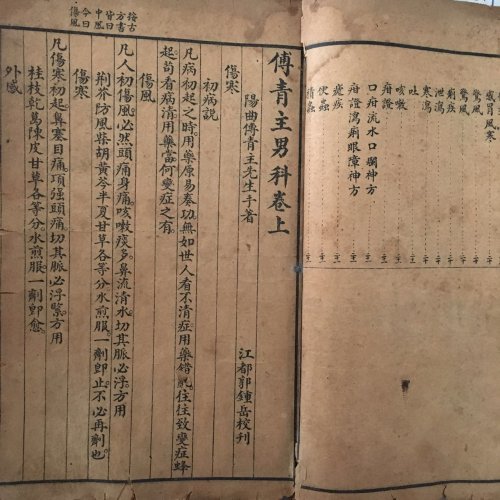 感冒風寒
驚風
驚風
痢疾
泄瀉
寒瀉
吐
咳嗽
疳證
口疳流水口爛神方
疳證瀉痢眼障神方
瘧疾
便蟲
積蟲
傅青主男科卷上
陽曲傅青主先生手著
江都郭鍾岳校刊
傷寒
初病說
凡病初起之時用藥原易奏功無如世人看不清症用藥錯亂往往致變症蜂
起苟看病清用藥當何變症之有
傷風
凡人初傷風必然頭痛身痛咳嗽痰多鼻流清水切其脈必浮方用
荊芥防風柴胡黃芩半夏甘草各等分水煎服一劑即止不必再劑也
傷寒
凡傷寒初起鼻塞目痛項強頭痛切其脈必浮緊方用
桂枝乾葛陳皮甘草各等分水煎服一劑即愈
外感
按古
方書
皆曰
中風
今曰
傷風